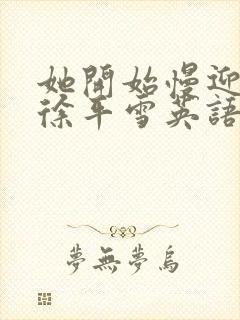 她開始慢迎
徐平雪英語
夢無夢烏